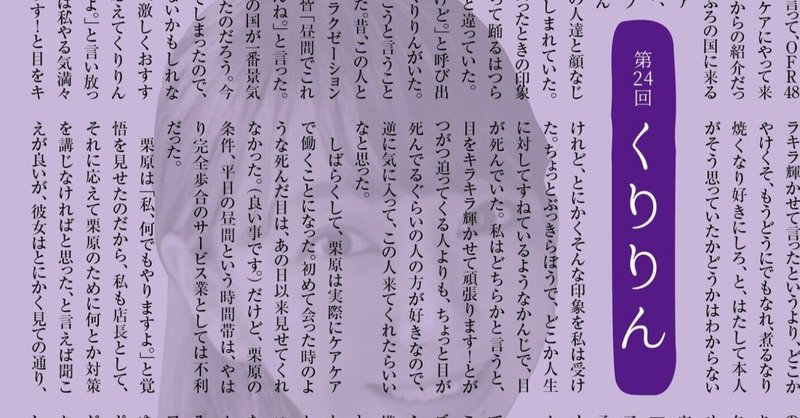 言って、OFR48
ケアにやって来
からの紹介だっ
ぶろの国に来る
の人達と顔なじ
しまれていた。
ったときの印象
って踊るはつら
と違っていた。
けど。』と呼び出
くりりんがいた。
こうと言うこと
った。昔、この人と
ラクゼーション
皆「昼間でこれ
んね。」と言った。
の国が一番景気
たのだろう。今
しまったので、
ないかもしれな
激しくおすす
応えてくりりん
よ。」と言い放っ
は私やる気満々
す！と目をキ
第24回
くりりん
ラキラ輝かせて言ったというより、どこか
やけくそ、もうどうにでもなれ、煮るなり
焼くなり好きにしろ、と、はたして本人
がそう思っていたかどうかはわからない
けれど、とにかくそんな印象を私は受け
た。ちょっとぶっきらぼうで、どこか人生
に対してすねているようなかんじで、目
が死んでいた。私はどちらかと言うと、
目をキラキラ輝かせて頑張ります！とが
つがつ迫ってくる人よりも、ちょっと目が
死んでるぐらいの人の方が好きなので、
逆に気に入って、この人来てくれたらいい
なと思った。
しばらくして、栗原は実際にケアケア
で働くことになった。初めて会った時のよ
うな死んだ目は、あの日以来見せてくれ
なかった。（良い事です。）だけど、栗原の
条件、平日の昼間という時間帯は、やは
り完全歩合のサービス業としては不利
だった。
栗原は「私、何でもやりますよ。」と覚
悟を見せたのだから、私も店長として、
それに応えて栗原のために何とか対策
を講じなければと思った、と言えば聞こ
えが良いが、彼女はとにかく見ての通り、